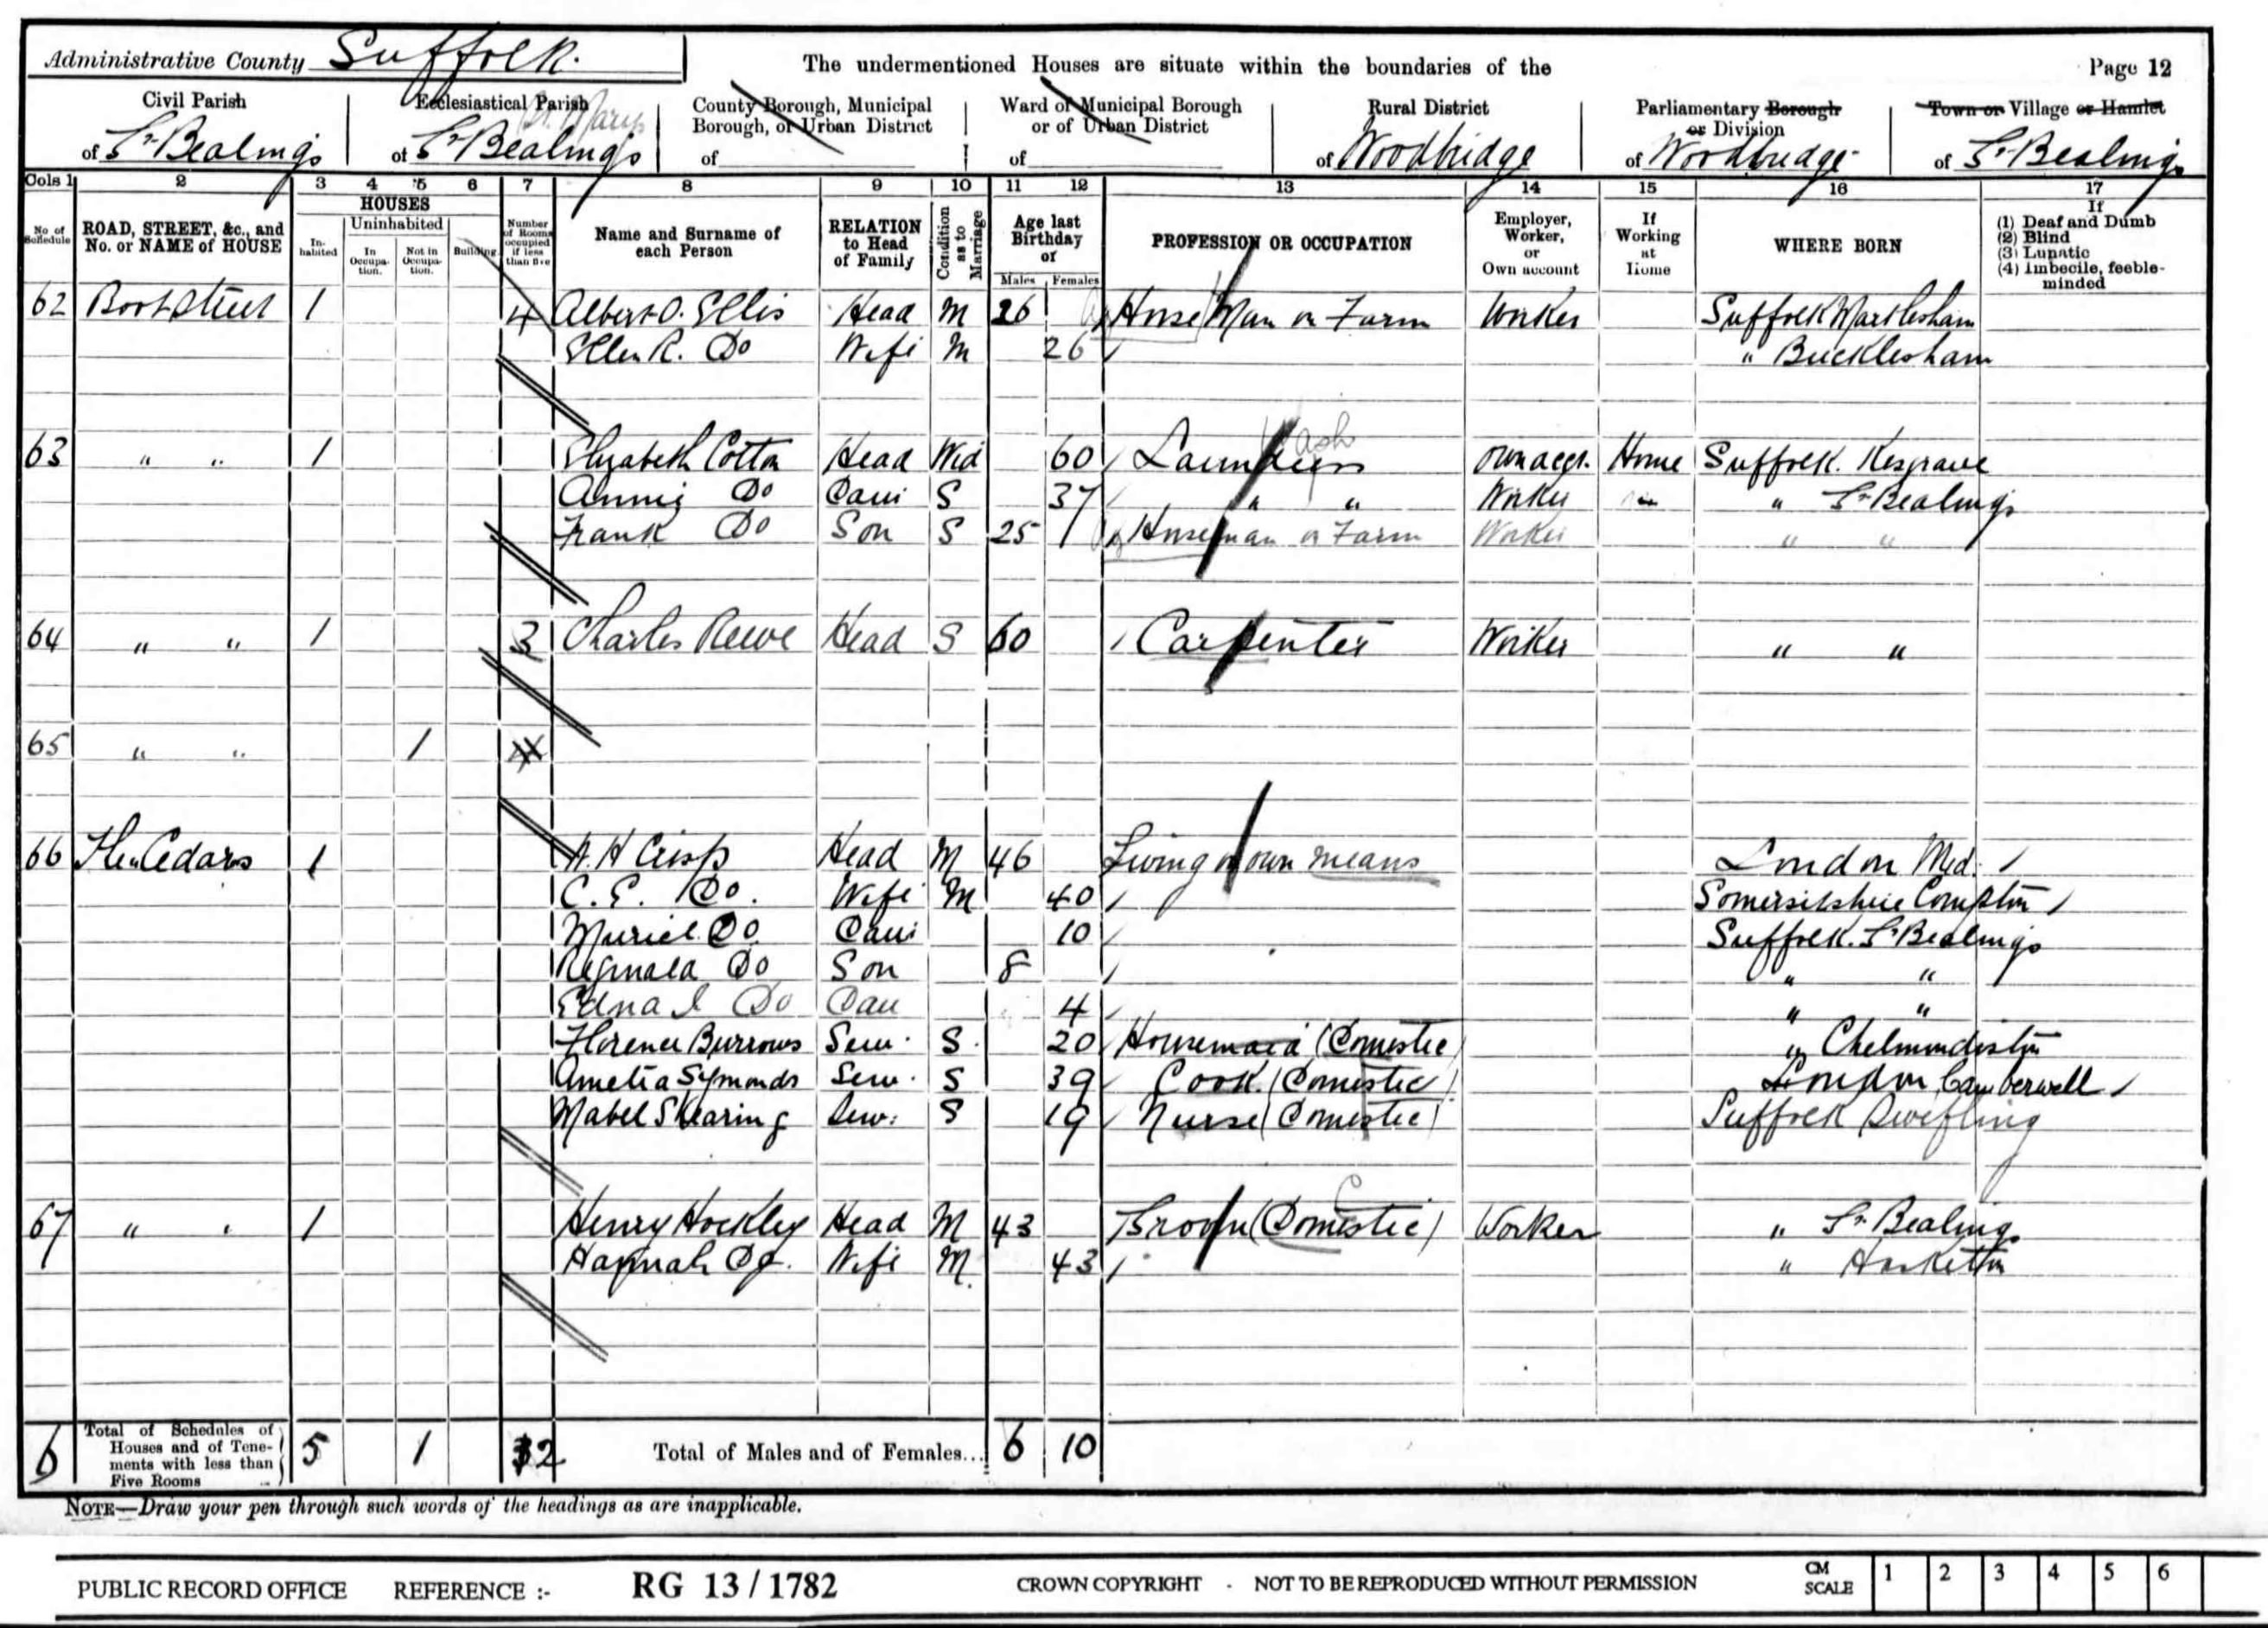 Administrative County Suffolk.
The undermentioned Houses are situate within the boundaries of the
Page 12
Civil Parish of Gt Bealings
Ecclesiastical Parish of Gt Bealings St. Mary
County Borough, Municipal Borough, or Urban District of
Ward of Municipal Borough or of Urban District of
Rural District of Woodbridge
Parliamentary Borough or Division of Woodbridge
Town or Village or Hamlet of Gt Bealings
Cols 1 2 3 4 5 6 7 8 9 10 11 12 13 14 15 16 17
No of Schedule
ROAD, STREET, &c., and No. or NAME of HOUSE
HOUSES
Inhabited
Uninhabited
In Occupation.
Not in Occupation.
Building
Number of Rooms occupied if less than five
Name and Surname of each Person
RELATION to Head of Family
Condition as to Marriage
Age last Birthday of
Males Females
PROFESSION OR OCCUPATION
Employer, Worker, or Own account
If Working at Home
WHERE BORN
If (1) Deaf and Dumb
(2) Blind
(3) Lunatic
(4) Imbecile, feeble-minded
62 Boot Street 1 4 Albert O. Ellis Head M 26 Horse Man on Farm Worker Suffolk Martlesham
Ellen R. Do Wife M 26 " Bucklesham
63 " " 1 Elizabeth Cotton Head Wid 60 Laundress Wash own acct. Home Suffolk. Kesgrave
Annie Do Daur S 37 " " Worker " Gt Bealings
Frank Do Son S 25 Ag Horseman on Farm Worker " "
64 " " 1 3 Charles Reeve Head S 60 Carpenter Worker " "
65 " " 1 4
66 The Cedars 1 W. H Crisp Head M 46 Living on own means London Mid.
C. E. Do. Wife M 40 Somersetshire Compton
Muriel Do. Daur 10 Suffolk. Gt Bealings
Reginald Do Son 8 " "
Edna I Do Dau 4 " "
Florence Burrows Serv. S. 20 Housemaid (Domestic) " Chelmondiston
Amelia Symonds Serv. S 39 Cook (Domestic) London Camberwell
Mabel Shearing Serv. S 19 Nurse (Domestic) Suffolk Swefling
67 " " 1 Henry Hockley Head M 43 Groom (Domestic) Worker " Gt. Bealings
Hannah Do. Wife M. 43 " Hasketon
6 Total of Schedules of Houses and of Tenements with less than Five Rooms 5 1 2 Total of Males and of Females... 6 10
NOTE—Draw your pen through such words of the headings as are inapplicable.
PUBLIC RECORD OFFICE REFERENCE :- RG 13 / 1782 CROWN COPYRIGHT - NOT TO BE REPRODUCED WITHOUT PERMISSION CM SCALE 1 2 3 4 5 6